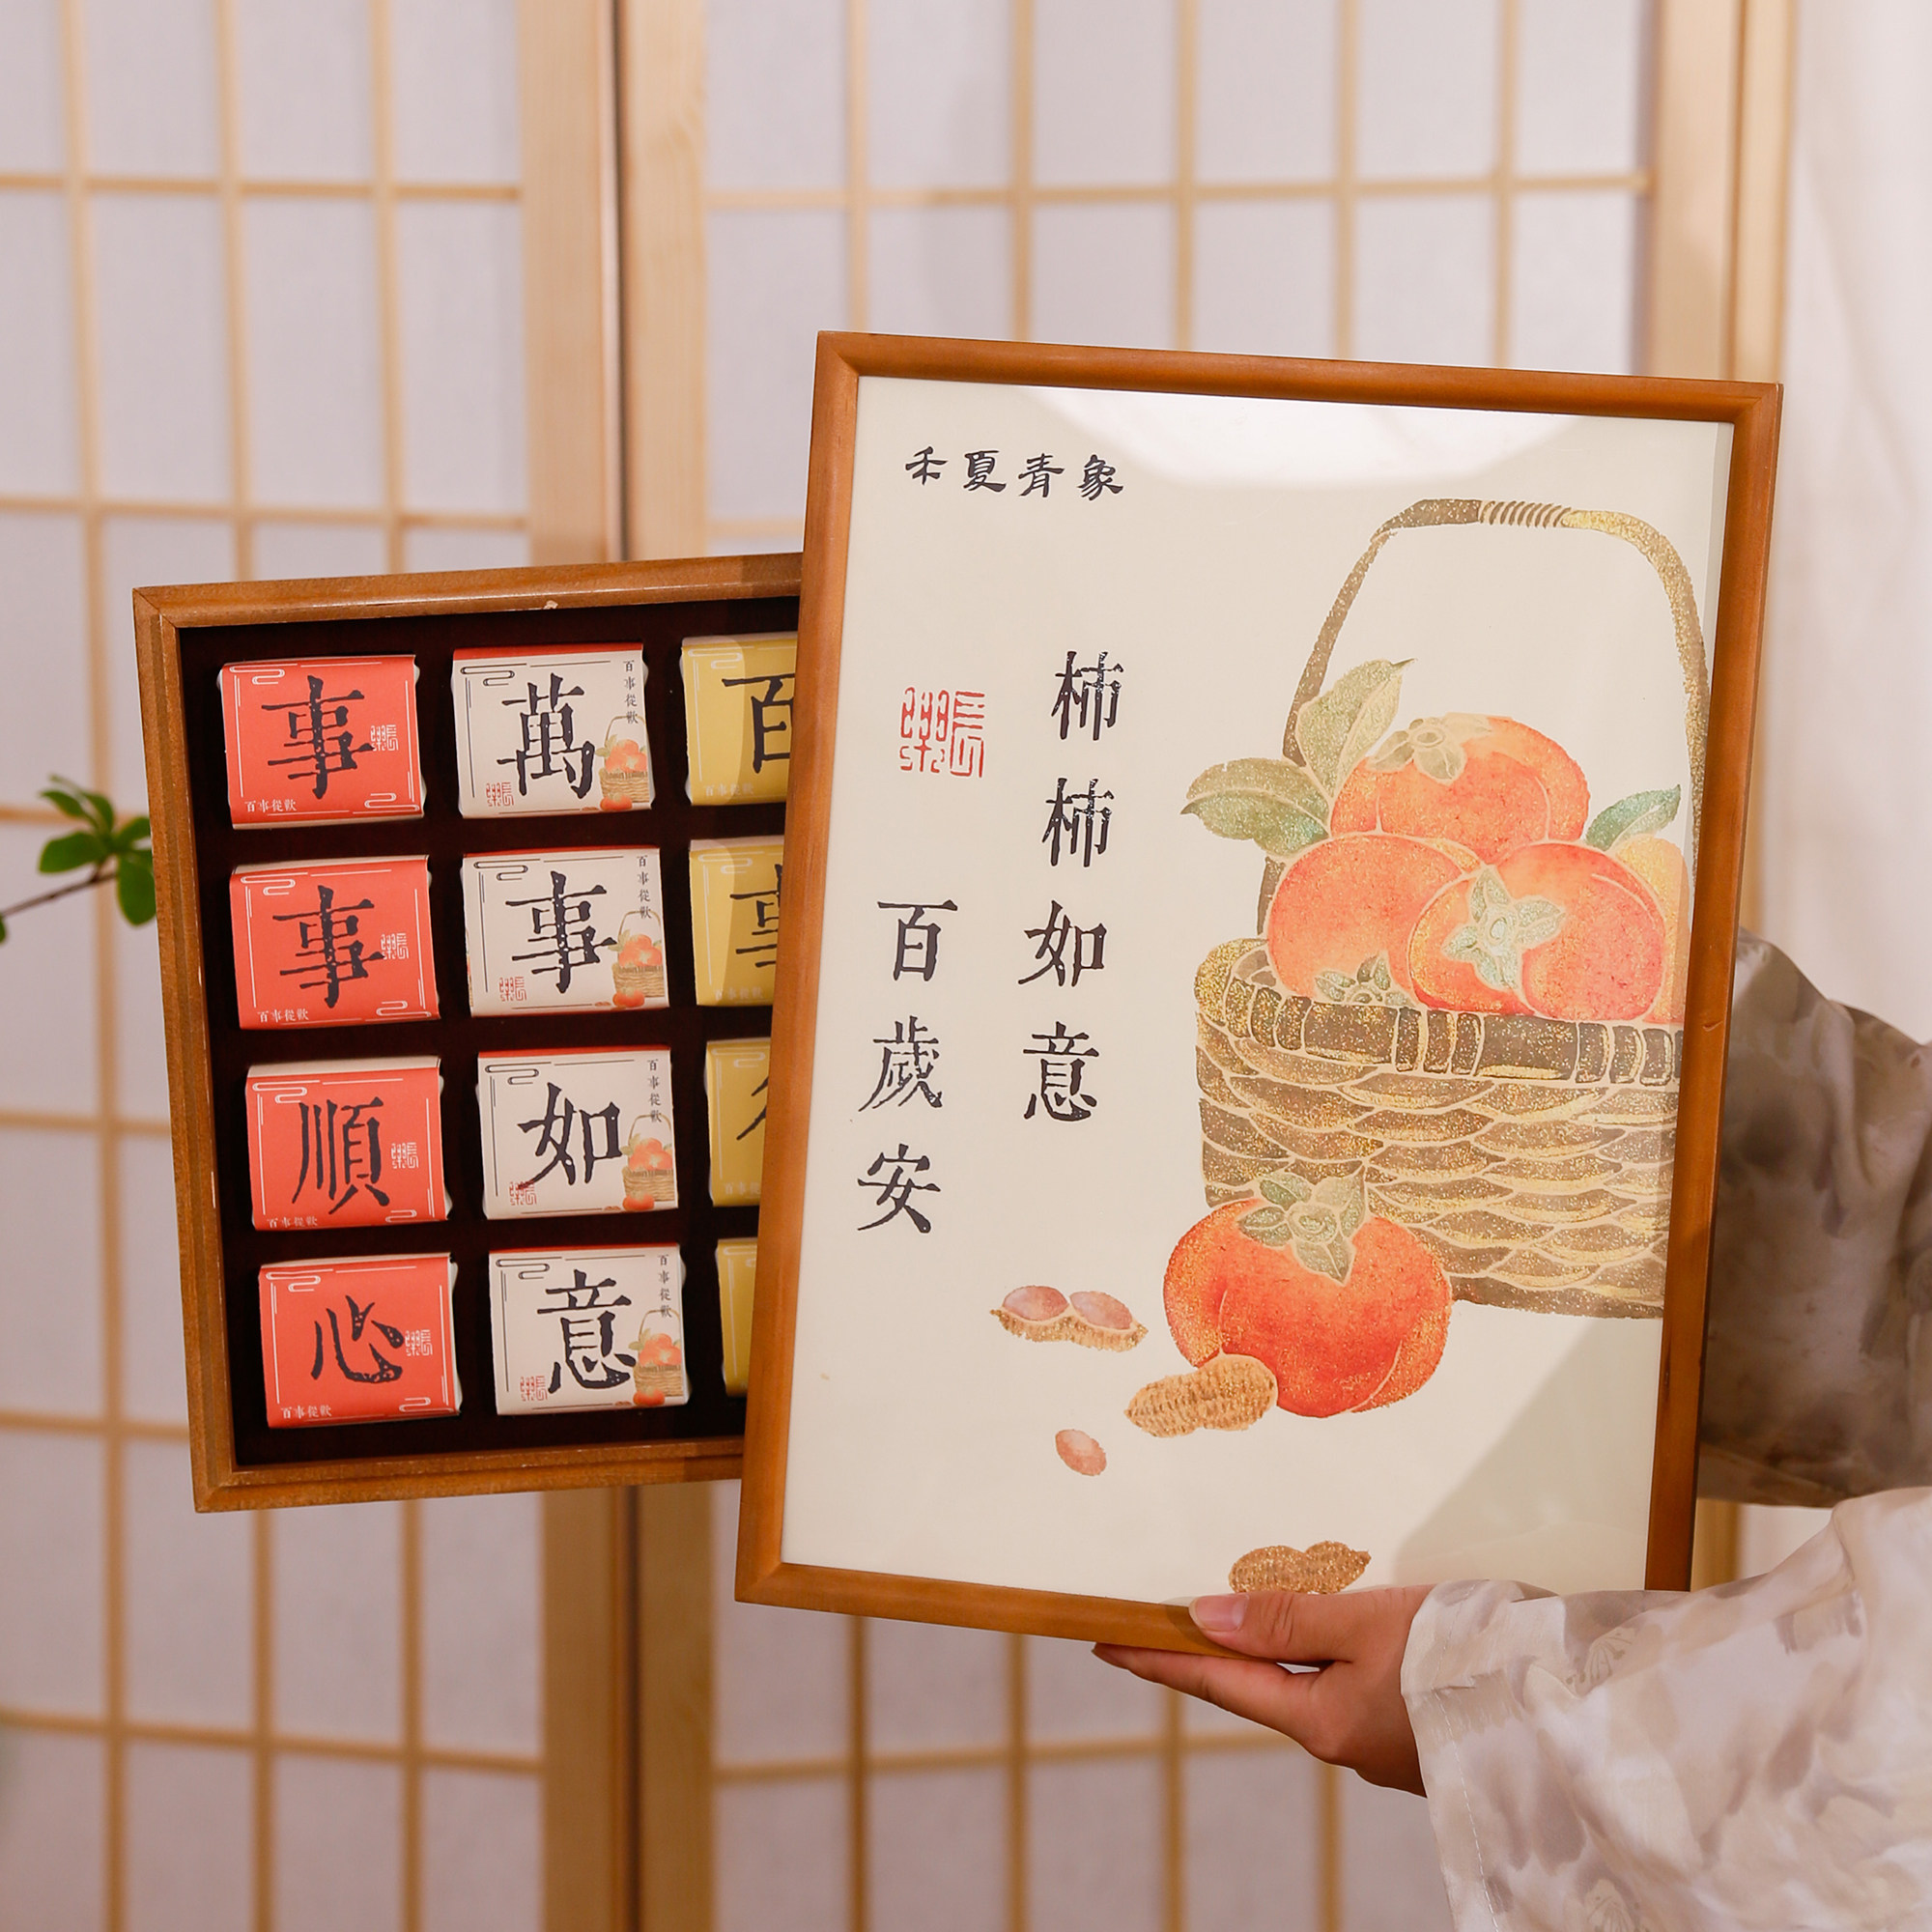 禾夏青象
柿柿如意
百歲安
長樂
事事順心
萬事如意
百事從
百事從歡
百事從歡
百事從歡
百事從歡
百事從歡
百事從歡
百事從歡
百事從歡